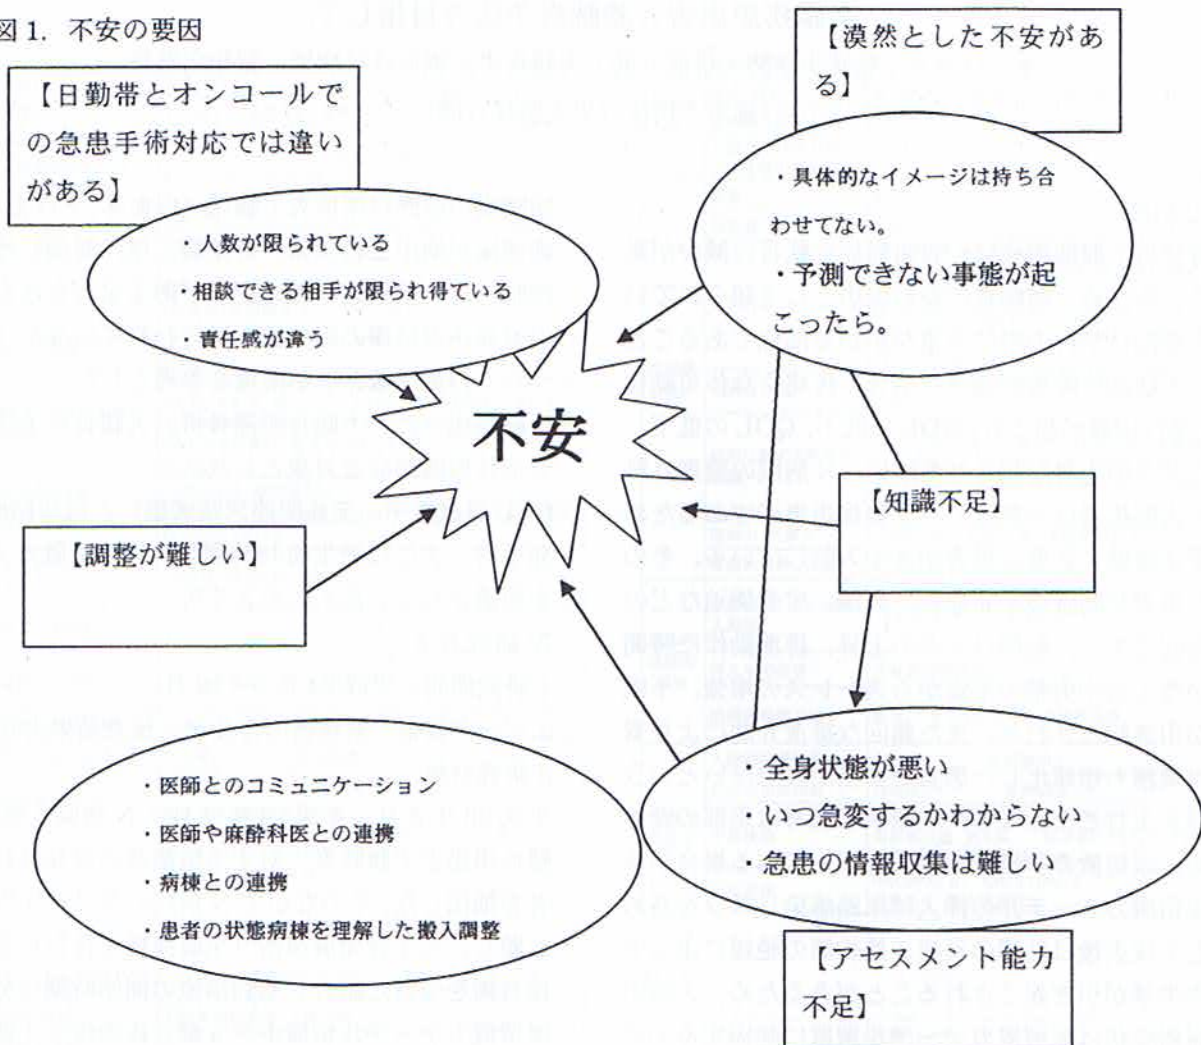 図1. 不安の要因
【日勤帯とオンコールで
の急患手術対応では違い
がある】
・人数が限られている
・相談できる相手が限られ得ている
・責任感が違う
【漠然とした不安があ
る】
・具体的なイメージは持ち合
わせてない。
・予測できない事態が起
こったら。
不安
【知識不足】
【調整が難しい】
・医師とのコミュニケーション
・医師や麻酔科医との連携
・病棟との連携
・患者の状態病棟を理解した搬入調整
・全身状態が悪い
・いつ急変するかわからない
・急患の情報収集は難しい
【アセスメント能力
不足】